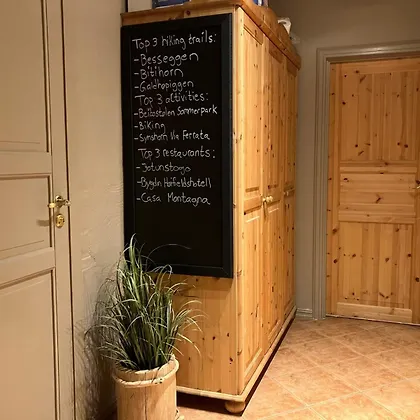 Top 3 hiking trails:
- Besseggen
- Bitihorn
- Galdhøpiggen
Top 3 activities:
- Beitostølen Sommerpark
- Biking
- Synshorn Via Ferrata
Top 3 restaurants:
- Jotunstogo
- Bygdin Høifjeldshotell
- Casa Montagna